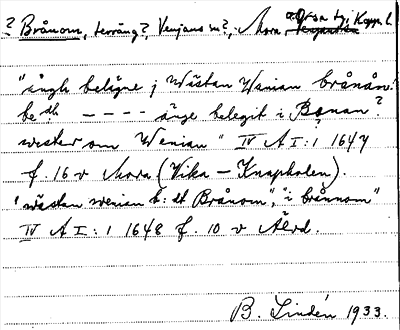 ? Brånom, terräng?, Venjans sn?, Mora o. Orsa tg, Kopp. l.
"ängh belägne j Wästan Wenian brånån!
be^dh - - - - änge belegit i Bonan?
wester om Wenian" IV A I:1 1647
f. 16 v Mora (Vika - Knapholen).
"wästan wenian b: et Brånom", "i brånnom"
IV A I:1 1648 f. 10 v Ålrd.
B. Lindén 1933.